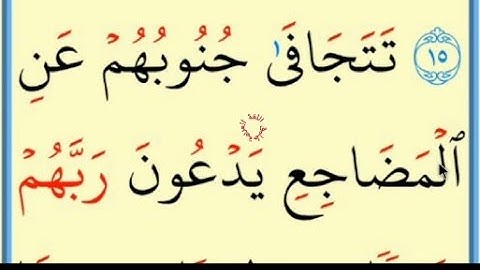 ١٥ تَتَجَافَىٰ جُنُوبُهُمْ عَنِ
ٱلْمَضَاجِعِ يَدْعُونَ رَبَّهُمْ